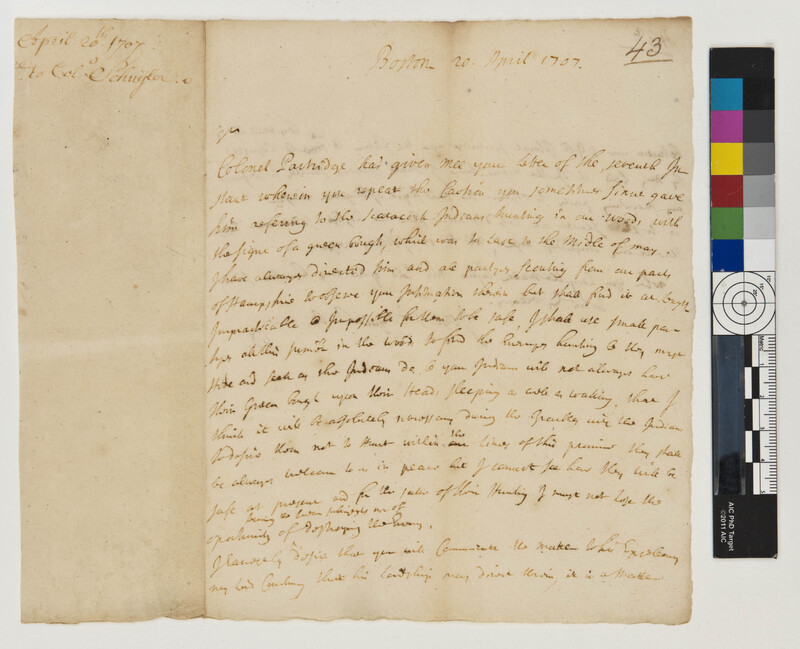 April 20th 1707
to Colo Schuyler
43
Boston 20. April 1707.
Sr
Colonel Partridge has given mee your letter of the seventh In
stant wherein you repeat the Caution you sometimes since gave
him referring to the Scatacook Indians hunting in our woods with
the signe of a green bough, which was to last to the Middle of may.
I have always directed him and all partyes scouting from our parts
of Hampshire to observe your Information therein but shall find it at length
Impracticable & Impossible for them to be safe, I shall use small par
tyes all this summer in the woods to find the Enemyes hunting & they must
hide and seek as the Indians do, & your Indians will not always have
their Green bough upon their Heads sleeping as well as waking, that I
think it will be absolutely necessary during the Troubles with the Indians
to desire them not to Hunt within the lines of this province they shall
be always welcome to us in peace but I cannot see how they will be
safe at present and for the sake of their Hunting I must not lose the
oportunity of destroying the Enemy.
I earnestly desire that you will Communicate the matter to his Excellency
my Lord Cornbury that his Lordship may direct therein, it is a Matter